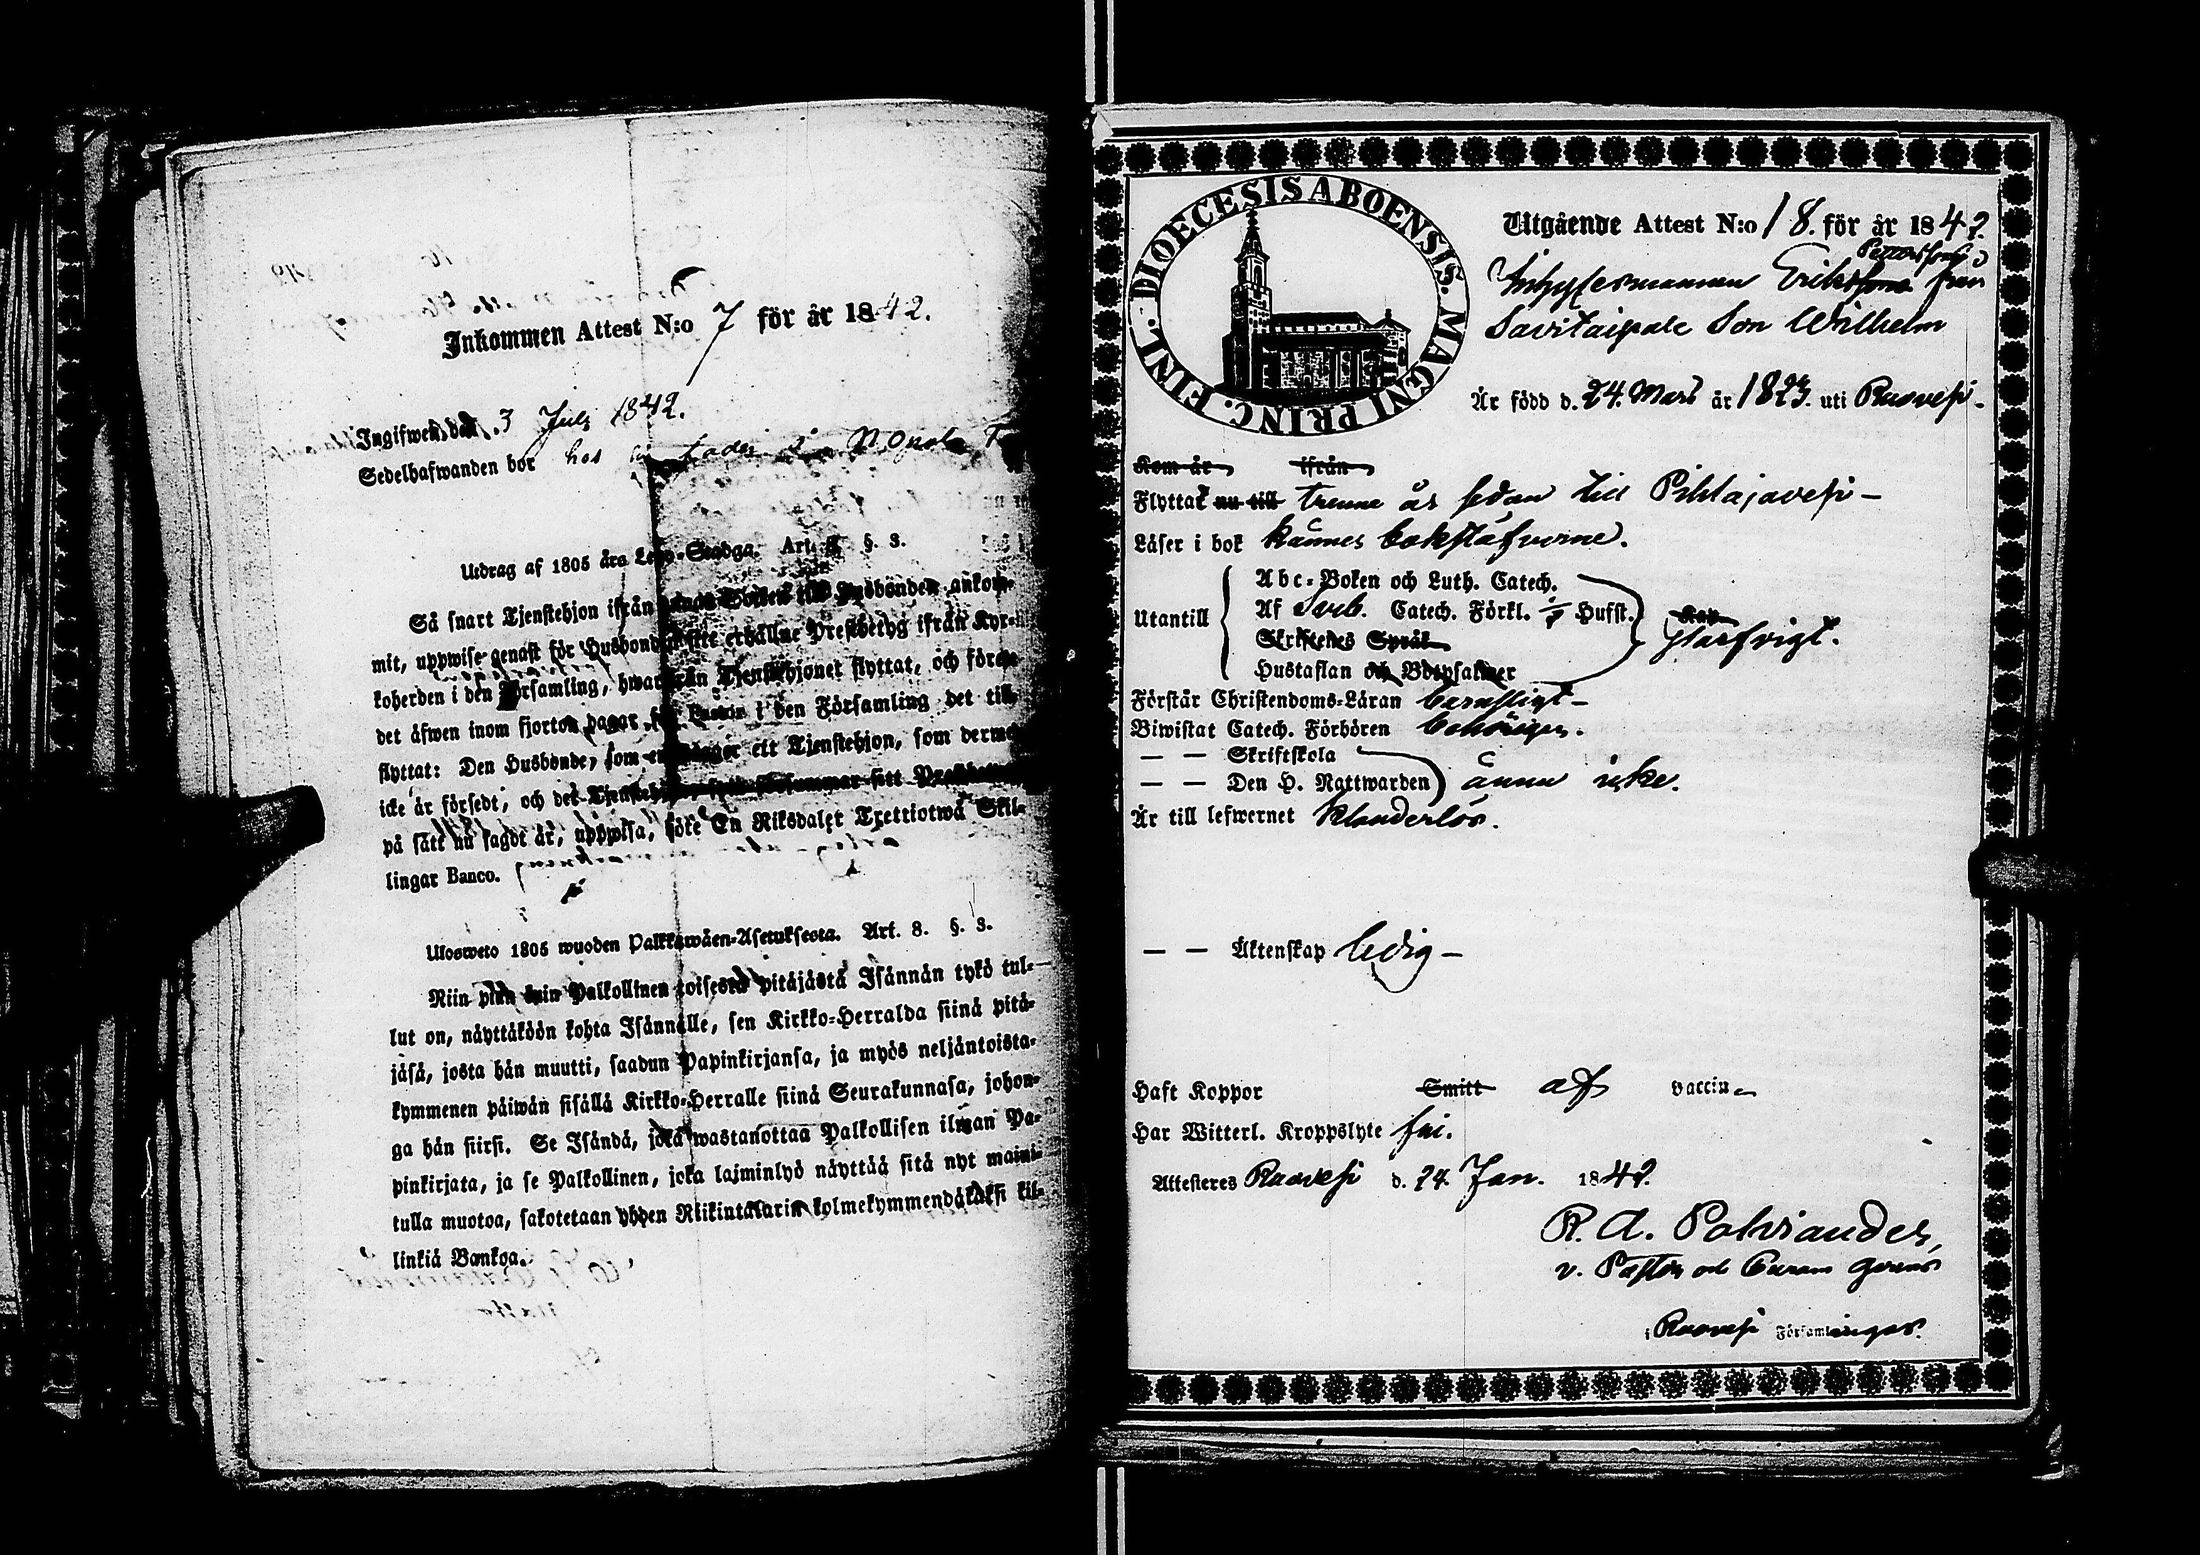 Inkommen Attest N:o 7 för år 1842.
Ingifwen den 3 July 1842.
Sedelhafwanden bor hos
Utdrag af 1805 års Lego-Stadga. Art. 8. §. 3.
Så snart Tjenstehjon ifrån annan till Husbonden ankom-
mit, uppwise genast för Husbonden sitt erhållne Prestbetyg ifrån Kyr-
koherden i den Församling, hwarifrån Tjenstehjonet flyttat, och förete
det äfwen inom fjorton dagar för Pastor i den Församling det till-
flyttat: Den Husbonde, som ett Tjenstehjon, som dermed
icke är försedt, och det Tjenstehjon, som försummar sitt Prestbetyg
på sätt nu sagdt är, uppwisa, böte En Riksdaler Trettiotwå Skil-
lingar Banco.
Ulosweto 1805 wuoden Palkkawäen-Asetuksesta. Art. 8. §. 3.
Niin pian kuin Palkollinen toisesta pitäjästä Isännän tykö tul-
lut on, näyttäköön kohta Isännälle, sen Kirkko-Herralda siinä pitä-
jäsä, josta hän muutti, saadun Papinkirjansa, ja myös neljäntoista-
kymmenen päiwän sisällä Kirkko-Herralle siinä Seurakunnasa, johon-
ga hän siirsi. Se Isändä, joka wastanottaa Palkollisen ilman Pa-
pinkirjata, ja se Palkollinen, joka lajminlyö näyttää sitä nyt maini-
tulla muotoa, sakotetaan yhden Riikintalarin kolmekymmendäkaksi kil-
linkiä Bankoa.
FINL. DIOECESIS ABOENSIS. MAGNI PRINC.
Utgående Attest N:o 18. för år 1842.
Pettersson
Inhysesmannen Eriksons från
Savitaipale Son Wilhelm
Är född d. 24. Mars år 1823. uti Ruovesi.
Kom år ifrån
Flyttat nu till trenne år sedan till Pihlajavesi-
Läser i bok känner bokstäfverne.
Utantill
Abc-Boken och Luth. Catech.
Af Sveb. Catech. Förkl. Hufst.
Skriftenes Språk
Hustaflan och Botpsalmer
Kan
starfvigt.
Förstår Christendoms-Läran barnsligt-
Biwistat Catech. Förhören behörigen.
— — Skriftskola
— — Den H. Nattwarden ännu icke.
Är till lefwernet klanderlös.
— — Äktenskap ledig-
Haft Koppor Smitt af vaccin
Har Witterl. Kroppslyte fri.
Attesteres Ruovesi d. 24. Jan. 1842.
R. A. Polviander,
v. Pastor och Curam gerens
i Ruovesi Församlingar.